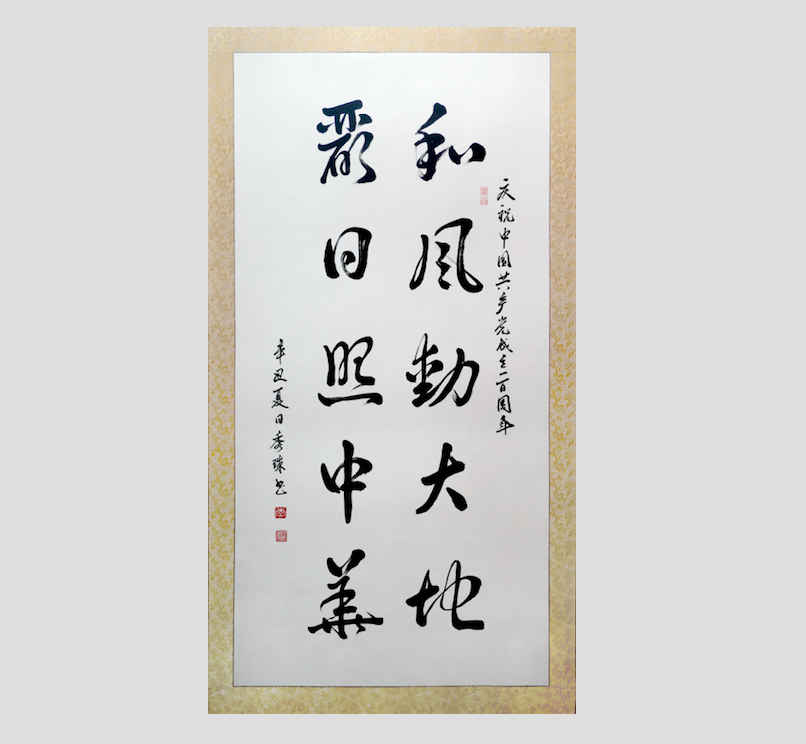 庆祝中国共产党成立一百周年
和風動大地
麗日照中華
辛丑夏日秀珠书